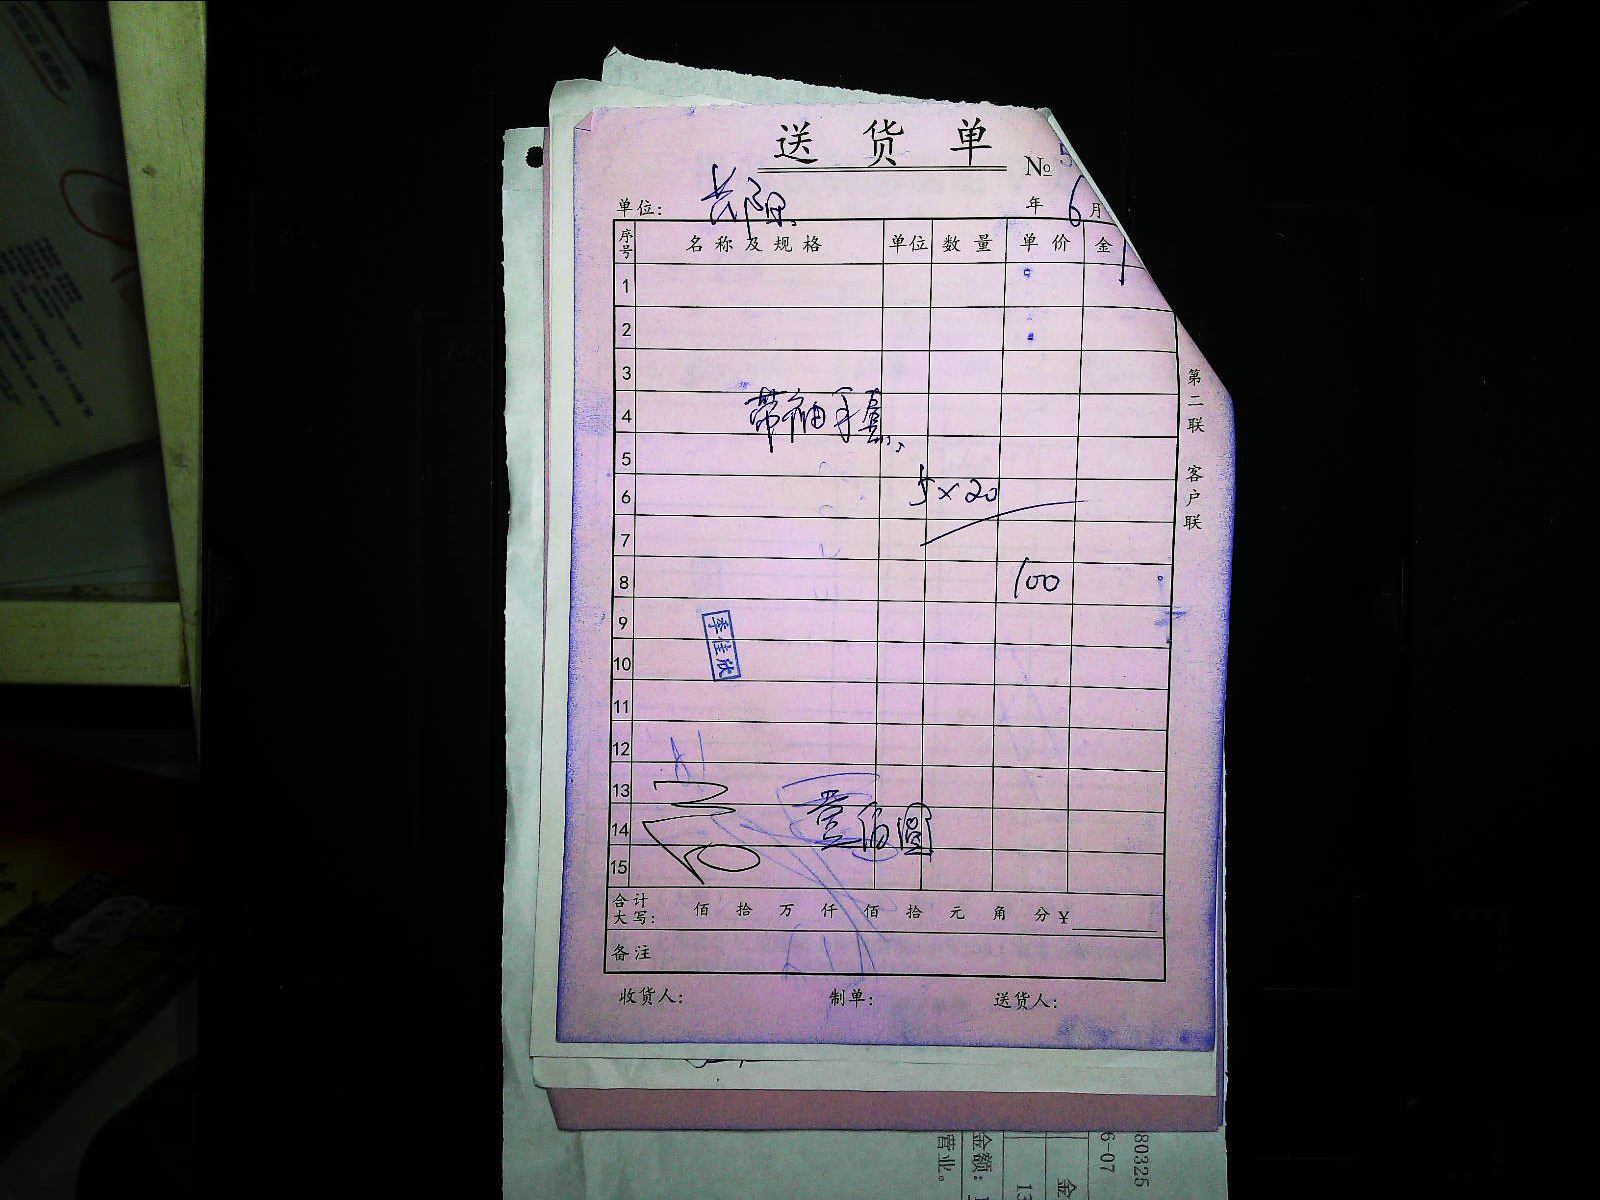 送货单
№
单位: 长阳 年 6 月
序号 名称及规格 单位 数量 单价 金
1
2
3
4 带袖手套
5
6 5×20
7
8 100
9
10
11
12
13
14 壹佰圆
15
季佳欣
合计大写: 佰 拾 万 仟 佰 拾 元 角 分 ¥
备注
收货人: 制单: 送货人:
第二联 客户联
80325
6-07
金额:
营业。
金